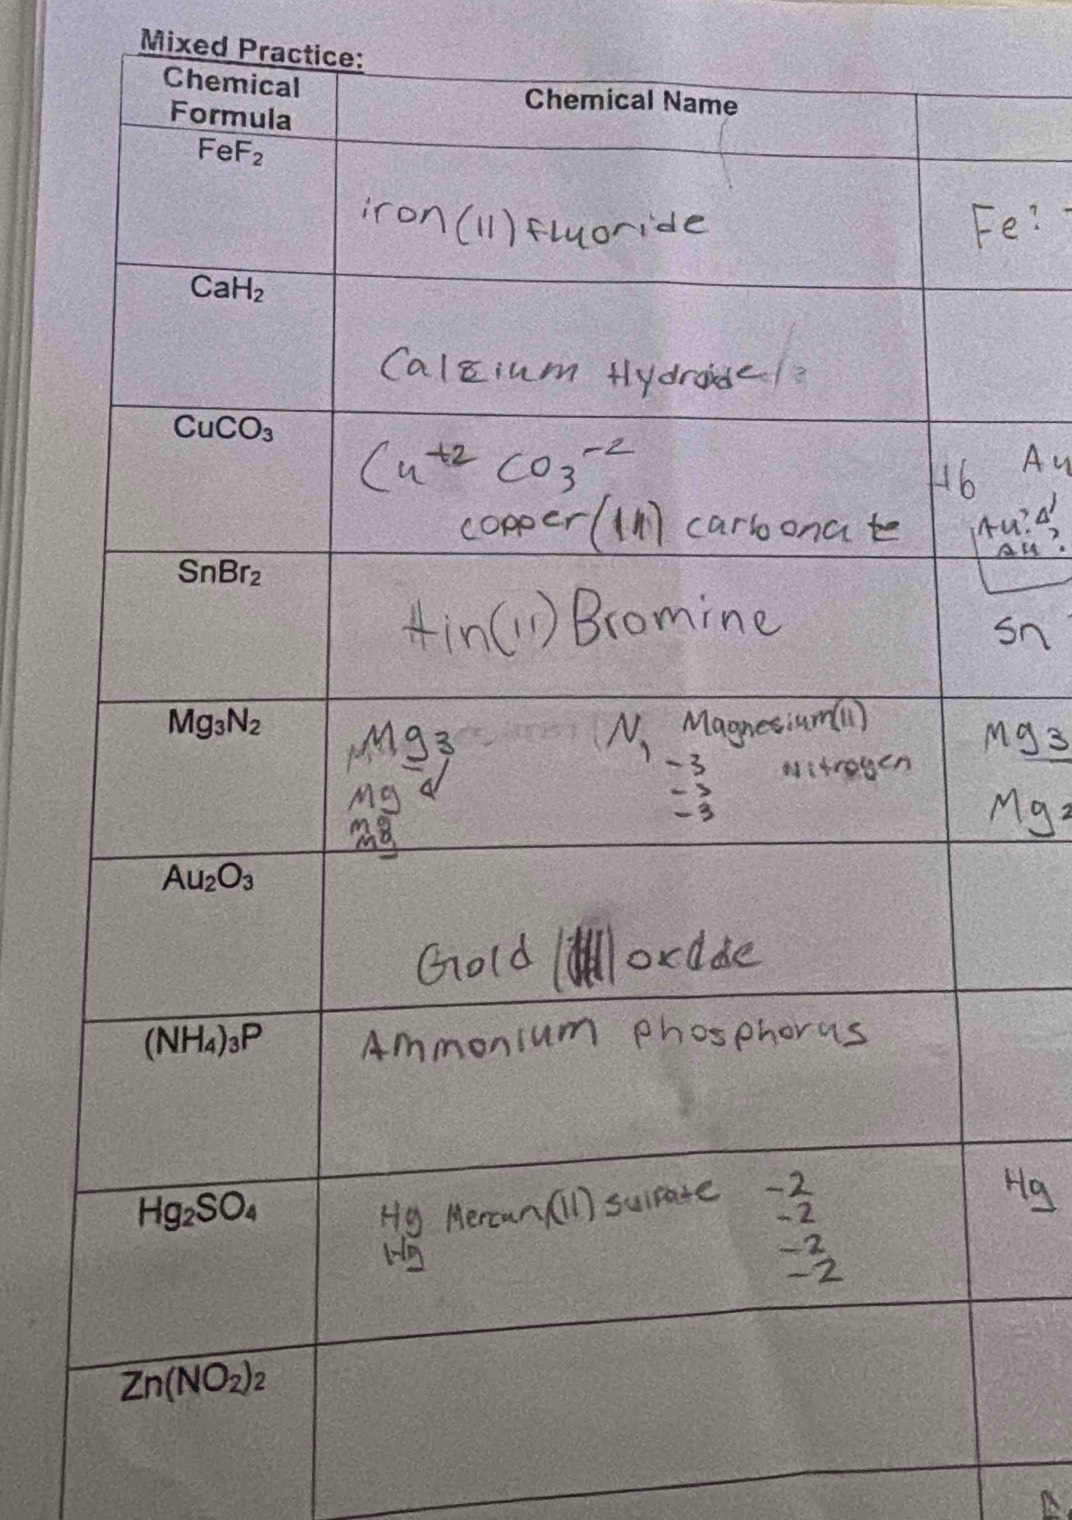 Mixed Practice:
Chemical Formula
Chemical Name
FeF₂
iron(II) Fluoride
Fe:
CaH₂
Calcium
CuCO₃
Cu⁺² CO₃⁻²
copper(II) carbonate
+6
Au
SnBr₂
tin(II) Bromine
Sn
Mg₃N₂
Mg₃
N,
Magnesium(II)
Nitrogen
Mg
mg
mg
-3
-3
-3
Mg3
Mg2
Au₂O₃
Gold
(NH₄)₃P
Ammonium phosphorus
Hg₂SO₄
Hg
(II)
-2
-2
-2
-2
Hg
Hg
Zn(NO₂)₂